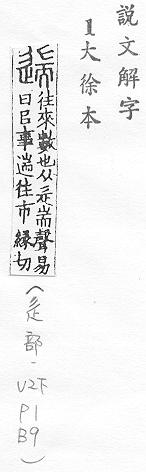 說文解字
1大徐本
遄往來數也从辵耑聲易
曰㠯事遄往市緣切
(辵部-
V2下
P1
B9)